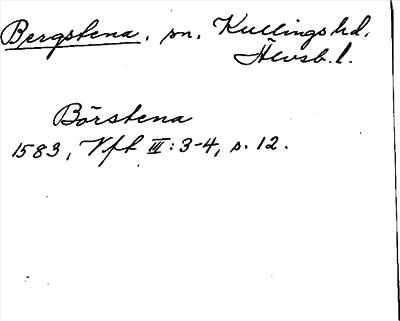 Bergstena. sn. Kullings hd.
Älvsb. l.
Börstena
1583, Vft III: 3-4, s. 12.